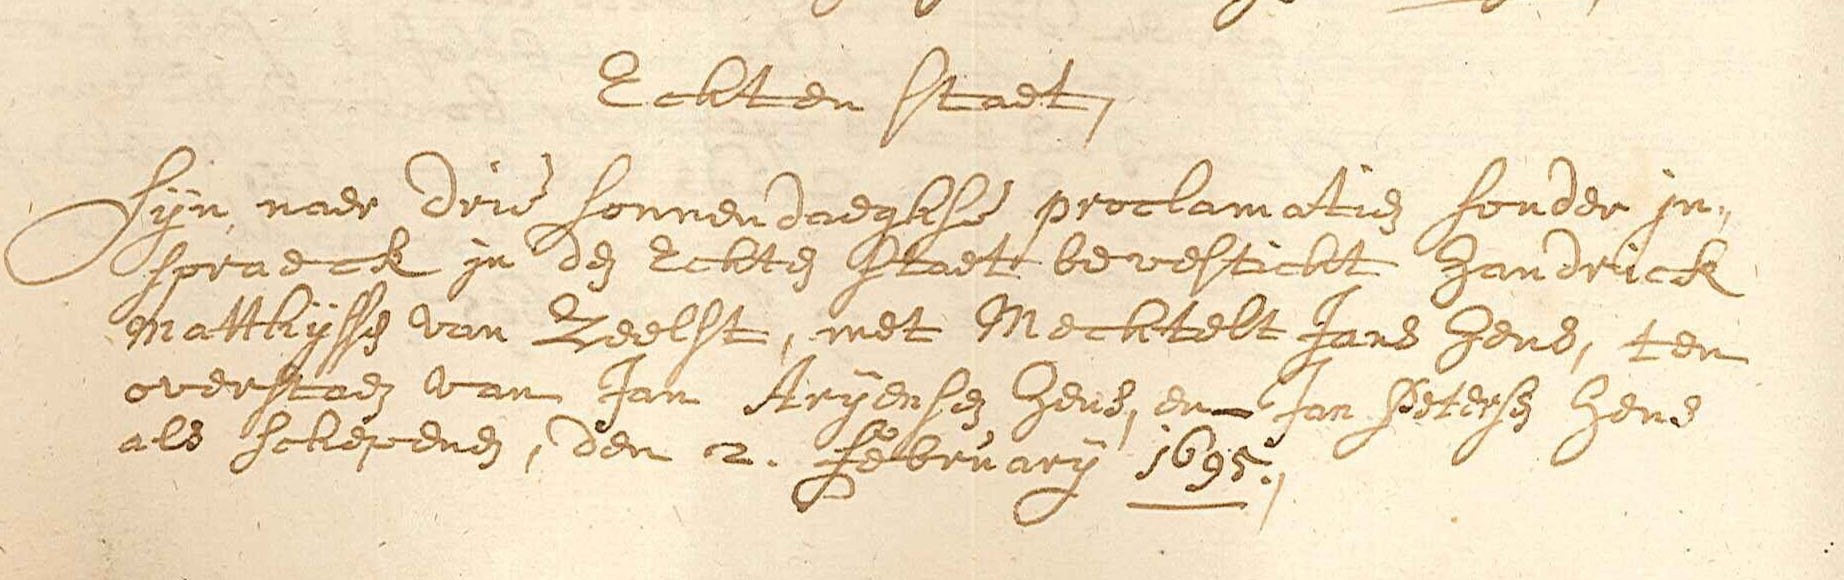 Echten staet,
Sijn naer drie sonnendaeghse proclamatien sonder jn-
spraeck jn den Echten staet bevesticht Handrick
Matthijssen van Zeelst, met Mechtelt Jans Hens, ten
overstaen van Jan Arijensen Hens, en Jan Petersen Hens
als schepenen, den 2. februarij 1695.,